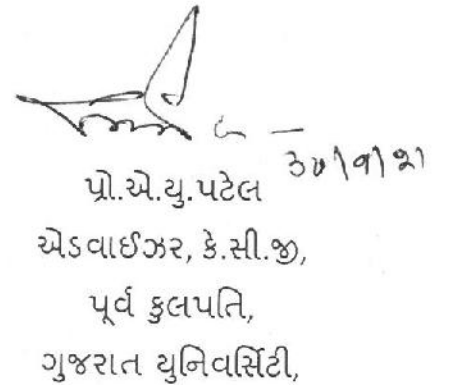 પ્રો.એ.યુ.પટેલ
એડવાઈઝર, કે.સી.જી,
પૂર્વ કુલપતિ,
ગુજરાત યુનિવર્સિટી,